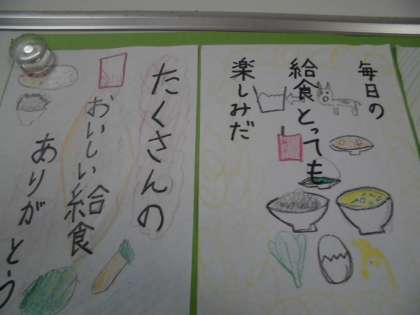 毎日の
給食とっても
楽しみだ
たくさんの
おいしい給食
ありがとう